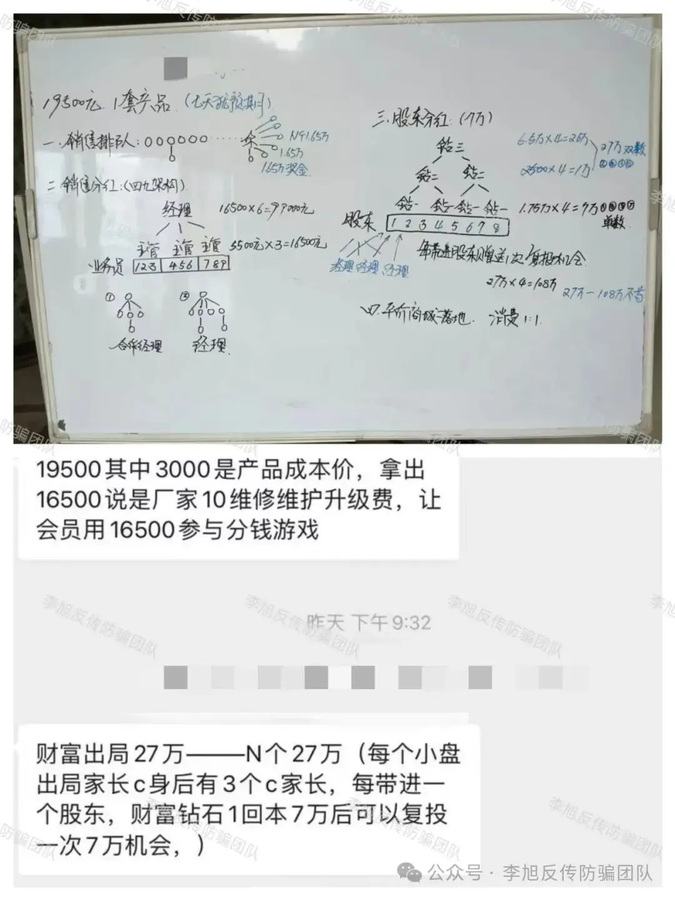 19500元 1套产品 (七天犹豫期)
一、销售排队:
N个1.65万
1.65万
1.65万奖金
二、销售分红:(四九架构)
经理 16500×6=99000元
主管 主管 主管 5500元×3=16500元
业务员 1 2 3 4 5 6 7 8 9
① ②
合作经理 经理
三、股东分红:(7万)
钻三 6.5万×4=26万
27万 双数
钻二 钻二 2500×4=1万
钻一 钻一 钻一 钻一 1.75万×4=7万
单数
股东 1 2 3 4 5 6 7 8
经理 经理 经理
每带进股东赠送1次复投机会
27万×4=108万
27万—108万不等
四、平价商城落地. 消费1:1.
19500其中3000是产品成本价，拿出
16500说是厂家10维修维护升级费，让
会员用16500参与分钱游戏
昨天 下午9:32
财富出局27万———N个27万（每个小盘
出局家长c身后有3个c家长，每带进一
个股东，财富钻石1回本7万后可以复投
一次7万机会，）
公众号 · 李旭反传防骗团队